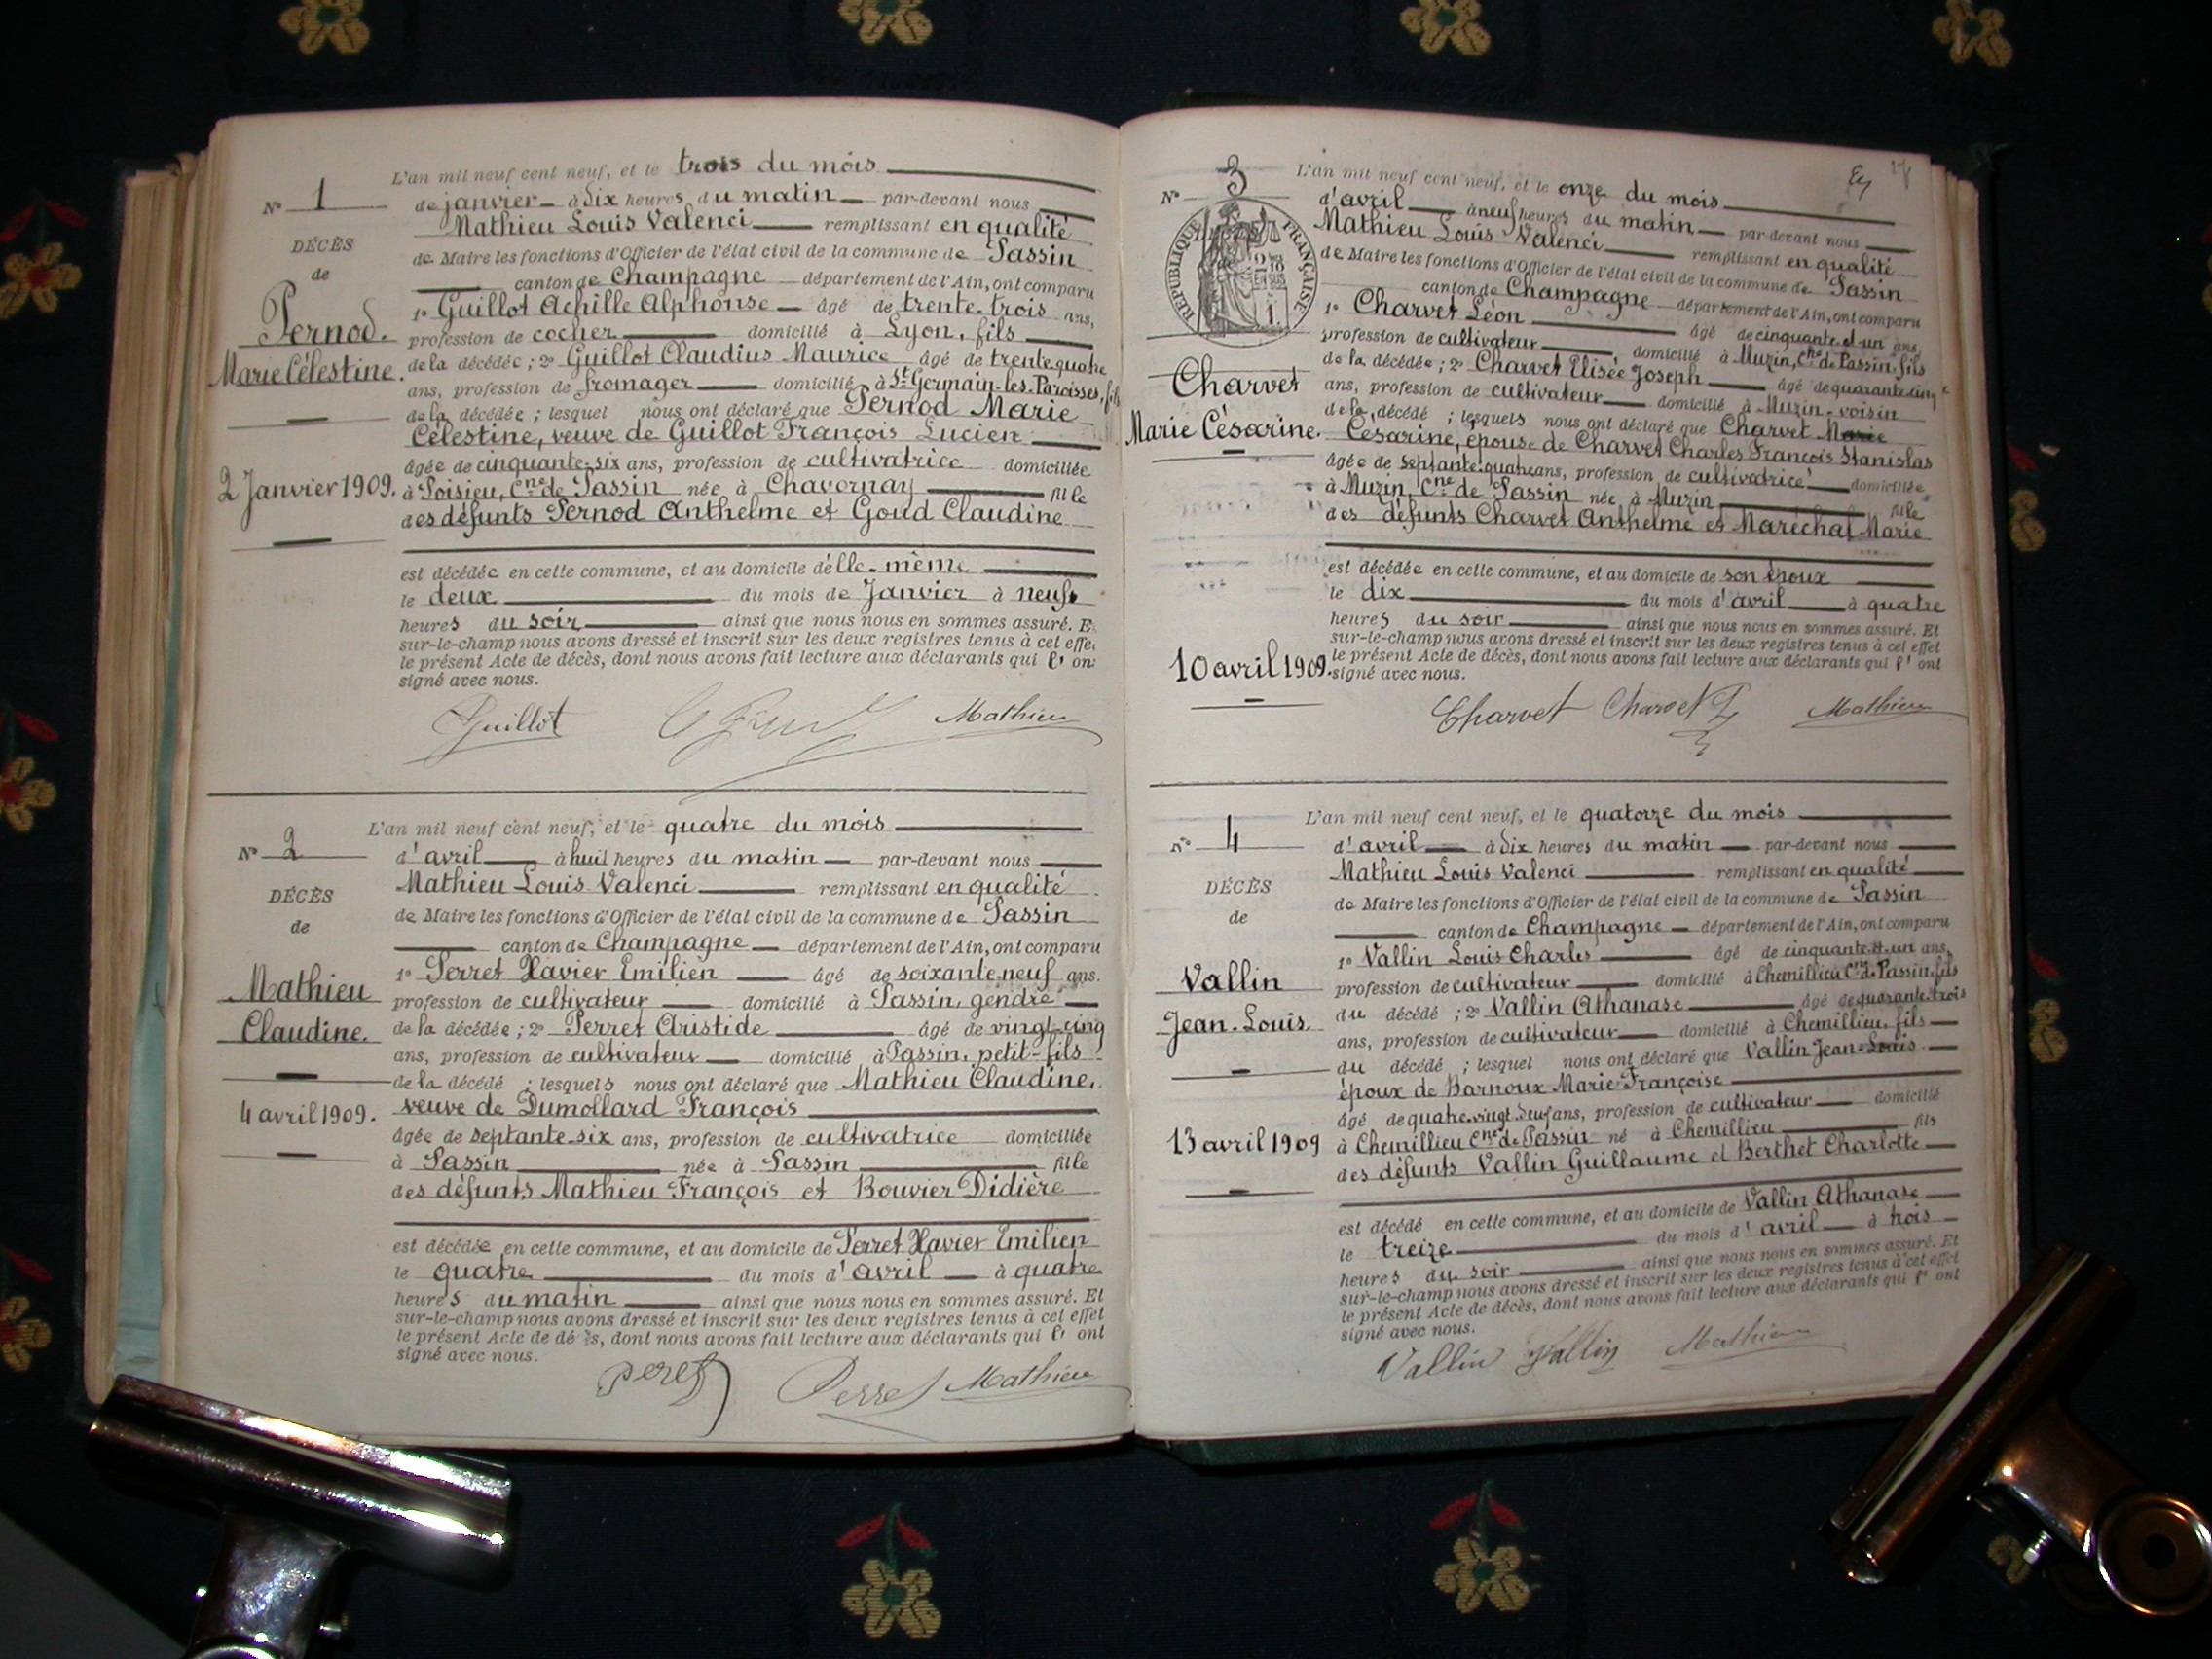 N° 1
DÉCÈS
de
Pernod.
Marie Célestine.
2 Janvier 1909.
L'an mil neuf cent neuf, et le trois du mois
de janvier à dix heures du matin par-devant nous
Mathieu Louis Valenci remplissant en qualité
de Maire les fonctions d'Officier de l'état civil de la commune de Passin
canton de Champagne département de l'Ain, ont comparu
1° Guillot Achille Alphonse âgé de trente-trois ans,
profession de cocher domicilié à Lyon, fils
de la décédée ; 2° Guillot Claudius Maurice âgé de trente quatre
ans, profession de fromager domicilié à St Germain-les-Paroisses, fils
de la décédée ; lesquel nous ont déclaré que Pernod Marie
Célestine, veuve de Guillot François Lucien
âgée de cinquante-six ans, profession de cultivatrice domiciliée
à Poisieu, Cne de Passin née à Chavornay fille
des défunts Pernod Anthelme et Goud Claudine
est décédée en cette commune, et au domicile d'elle-même
le deux du mois de Janvier à neuf
heures du soir ainsi que nous nous en sommes assuré. E
sur-le-champ nous avons dressé et inscrit sur les deux registres tenus à cet effe
le présent Acte de décès, dont nous avons fait lecture aux déclarants qui l' on
signé avec nous.
Guillot Mathieu
N° 2
DÉCÈS
de
Mathieu
Claudine.
4 avril 1909.
L'an mil neuf cent neuf, et le quatre du mois
d'avril à huit heures du matin par-devant nous
Mathieu Louis Valenci remplissant en qualité
de Maire les fonctions d'Officier de l'état civil de la commune de Passin
canton de Champagne département de l'Ain, ont comparu
1° Perret Xavier Emilien âgé de soixante-neuf ans.
profession de cultivateur domicilié à Passin, gendre
de la décédée ; 2° Perret Aristide âgé de vingt-cinq
ans, profession de cultivateur domicilié à Passin, petit-fils
de la décédé ; lesquels nous ont déclaré que Mathieu Claudine,
veuve de Dumollard François
âgée de septante-six ans, profession de cultivatrice domiciliée
à Passin née à Passin fille
des défunts Mathieu François et Bouvier Didière
est décédée en cette commune, et au domicile de Perret Xavier Emilien
le quatre du mois d'avril à quatre
heures du matin ainsi que nous nous en sommes assuré. Et
sur-le-champ nous avons dressé et inscrit sur les deux registres tenus à cet effet
le présent Acte de dé ès, dont nous avons fait lecture aux déclarants qui l' ont
signé avec nous.
Peret Perret Mathieu
N° 3
RÉPUBLIQUE FRANÇAISE
Charvet
Marie Césarine.
10 avril 1909.
L'an mil neuf cent neuf, et le onze du mois
d'avril à neuf heures du matin par-devant nous
Mathieu Louis Valenci remplissant en qualité
de Maire les fonctions d'Officier de l'état civil de la commune de Passin
canton de Champagne département de l'Ain, ont comparu
1° Charvet Léon âgé de cinquante et un ans,
profession de cultivateur, domicilié à Muzin, Cne de Passin, fils
de la décédée ; 2° Charvet Elisée Joseph âgé de quarante-cinq
ans, profession de cultivateur domicilié à Muzin, voisin
de la décédé ; lesquels nous ont déclaré que Charvet Marie
Césarine, épouse de Charvet Charles François Stanislas
âgée de septante-quatre ans, profession de cultivatrice domiciliée
à Muzin, Cne de Passin née à Muzin fille
des défunts Charvet Anthelme et Maréchal Marie
est décédée en cette commune, et au domicile de son époux
le dix du mois d'avril à quatre
heures du soir ainsi que nous nous en sommes assuré. Et
sur-le-champ nous avons dressé et inscrit sur les deux registres tenus à cet effet
le présent Acte de décès, dont nous avons fait lecture aux déclarants qui l' ont
signé avec nous.
Charvet Charvet Mathieu
N° 4
DÉCÈS
de
Vallin
Jean-Louis.
13 avril 1909
L'an mil neuf cent neuf, et le quatorze du mois
d'avril à dix heures du matin par-devant nous
Mathieu Louis Valenci remplissant en qualité
de Maire les fonctions d'Officier de l'état civil de la commune de Passin
canton de Champagne département de l'Ain, ont comparu
1° Vallin Louis Charles âgé de cinquante et un ans,
profession de cultivateur domicilié à Chemillieu Cne de Passin, fils
du décédé ; 2° Vallin Athanase âgé de quarante-trois
ans, profession de cultivateur domicilié à Chemillieu, fils
du décédé ; lesquel nous ont déclaré que Vallin Jean-Louis
époux de Barnoux Marie Françoise
âgé de quatre-vingt-deux ans, profession de cultivateur domicilié
à Chemillieu Cne de Passin né à Chemillieu fils
des défunts Vallin Guillaume et Berthet Charlotte
est décédé en cette commune, et au domicile de Vallin Athanase
le treize du mois d'avril à trois
heures du soir ainsi que nous nous en sommes assuré. Et
sur-le-champ nous avons dressé et inscrit sur les deux registres tenus à cet effet
le présent Acte de décès, dont nous avons fait lecture aux déclarants qui l' ont
signé avec nous.
Vallin Vallin Mathieu